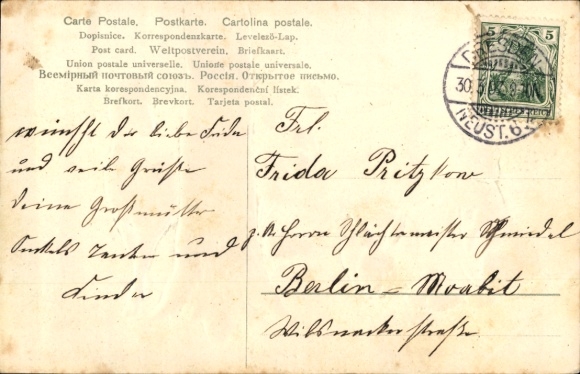 Carte Postale, Postkarte. Cartolina postale.
Dopisnice. Korrespondenzkarte. Levelező-Lap.
Post card. Weltpostverein, Briefkaart.
Union postale universelle. Unione postale universale.
Всемірный почтовый союзъ. Россія. Открытое письмо.
Karta korespondencyjna. Korespondenční lístek.
Brefkort. Brevkort. Tarjeta postal.
5 5
DRESDEN
30.
NEUST. 6
wünscht dir liebe Frida
und viele Grüße
deine Großmutter
Onkels Tanten und
Kinder
Frl.
Frida Pritzkow
Herrn Schlächtermeister Schmiedel
Berlin = Moabit
Wilsnackerstraße